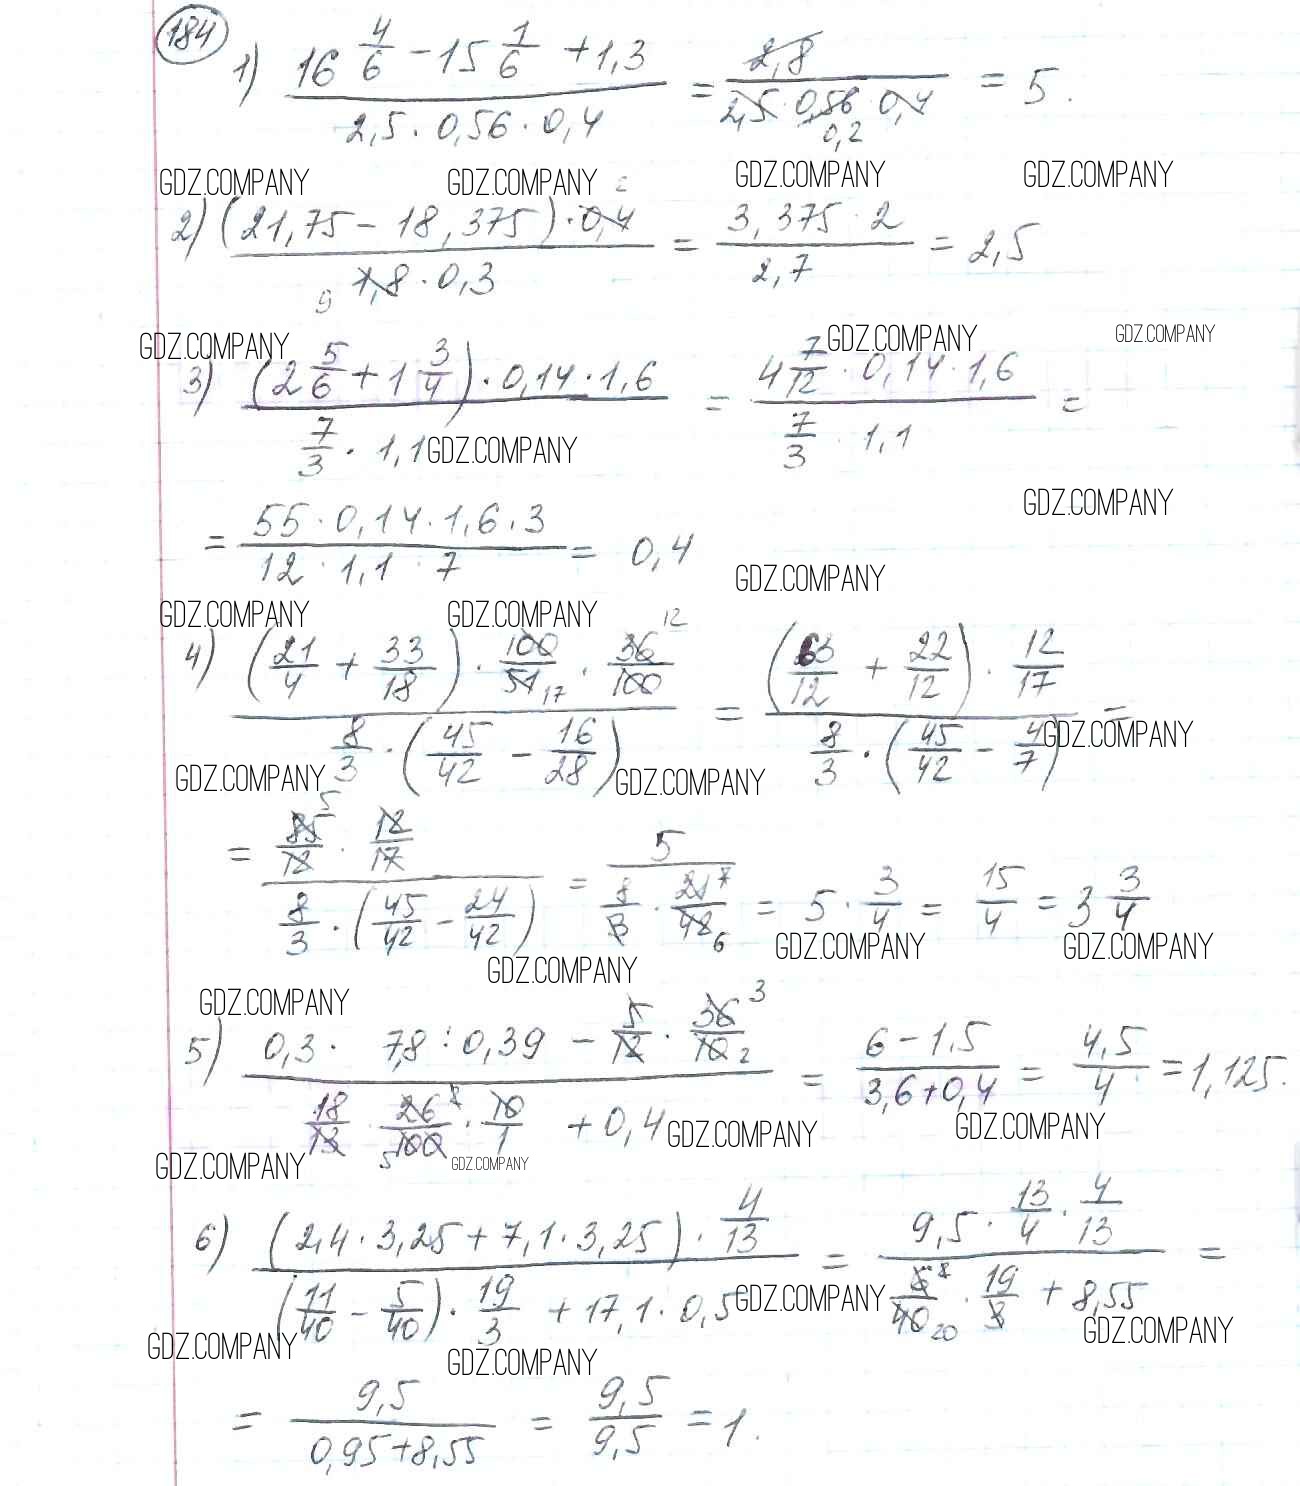 184
1) (16 4/6 − 15 1/6 + 1,3) / (2,5 · 0,56 · 0,4) = 2,8 / (2,5 · 0,56 · 0,4) = 5.
0,2
GDZ.COMPANY GDZ.COMPANY GDZ.COMPANY GDZ.COMPANY
2) (21,75 − 18,375) · 0,4 / (1,8 · 0,3) = 3,375 · 2 / 2,7 = 2,5
9
GDZ.COMPANY GDZ.COMPANY GDZ.COMPANY
3) (2 5/6 + 1 3/4) · 0,14 · 1,6 / (7/3 · 1,1) = 4 7/12 · 0,14 · 1,6 / (7/3 · 1,1) =
GDZ.COMPANY
GDZ.COMPANY
= 55 · 0,14 · 1,6 · 3 / (12 · 1,1 · 7) = 0,4
GDZ.COMPANY
GDZ.COMPANY GDZ.COMPANY
12
4) (21/4 + 33/18) · 100/51 · 36/100 / (8/3 · (45/42 − 16/28)) = (63/12 + 22/12) · 12/17 / (8/3 · (45/42 − 4/7)) =
17
GDZ.COMPANY GDZ.COMPANY GDZ.COMPANY
5
= 85/12 · 12/17 / (8/3 · (45/42 − 24/42)) = 5 / (8/3 · 21/42) = 5 · 3/4 = 15/4 = 3 3/4
GDZ.COMPANY GDZ.COMPANY GDZ.COMPANY
GDZ.COMPANY
3
5) (0,3 · 7,8 : 0,39 − 5/12 · 36/10) / (18/13 · 26/100 · 10/1 + 0,4) = (6 − 1,5) / (3,6 + 0,4) = 4,5/4 = 1,125.
2
5
GDZ.COMPANY GDZ.COMPANY GDZ.COMPANY GDZ.COMPANY
6) (2,4 · 3,25 + 7,1 · 3,25) · 4/13 / ((11/40 − 5/40) · 19/3 + 17,1 · 0,5) = 9,5 · 13/4 · 4/13 / (6/40 · 19/3 + 8,55) =
20
GDZ.COMPANY GDZ.COMPANY GDZ.COMPANY GDZ.COMPANY
= 9,5 / (0,95 + 8,55) = 9,5/9,5 = 1.